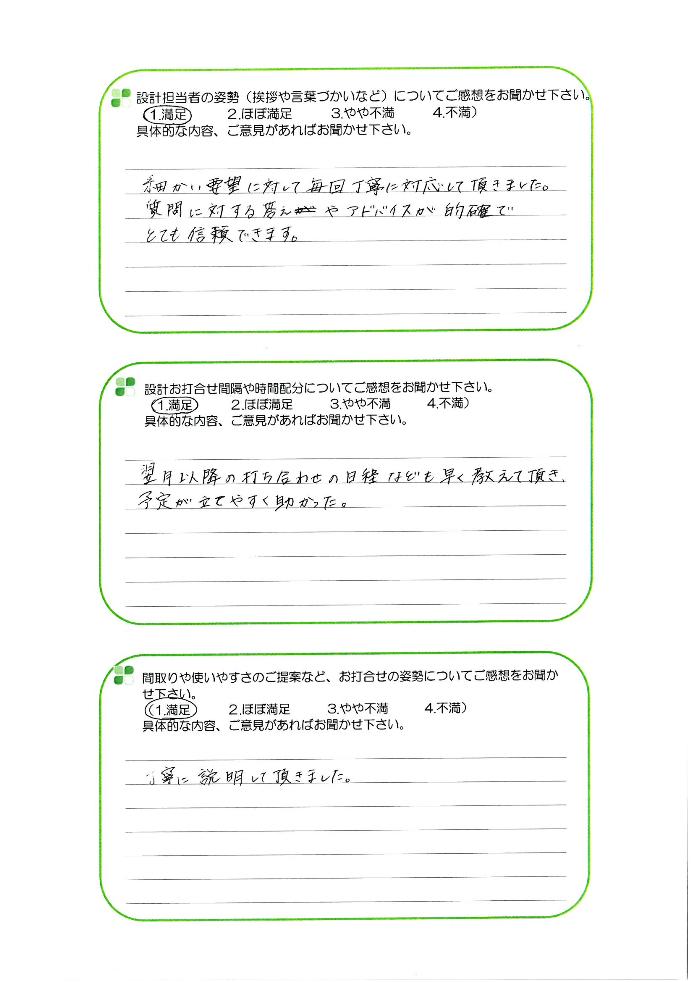 設計担当者の姿勢（挨拶や言葉づかいなど）についてご感想をお聞かせ下さい。
（1.満足 2.ほぼ満足 3.やや不満 4.不満）
具体的な内容、ご意見があればお聞かせ下さい。
細かい要望に対して毎回丁寧に対応して頂きました。
質問に対する答えやアドバイスが的確で
とても信頼できます。
設計お打合せ間隔や時間配分についてご感想をお聞かせ下さい。
（1.満足 2.ほぼ満足 3.やや不満 4.不満）
具体的な内容、ご意見があればお聞かせ下さい。
翌月以降の打ち合わせの日程なども早く教えて頂き、
予定が立てやすく助かった。
間取りや使いやすさのご提案など、お打合せの姿勢についてご感想をお聞か
せ下さい。
（1.満足 2.ほぼ満足 3.やや不満 4.不満）
具体的な内容、ご意見があればお聞かせ下さい。
丁寧に説明して頂きました。